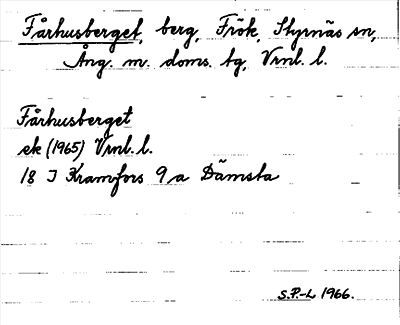 Fårhusberget, berg, Frök, Styrnäs sn,
Ång. m. doms. tg, Vrnl. l.
Fårhusberget
ek (1965) Vrnl. l.
18 I Kramfors 9 a Dämsta
S.P.-L 1966.